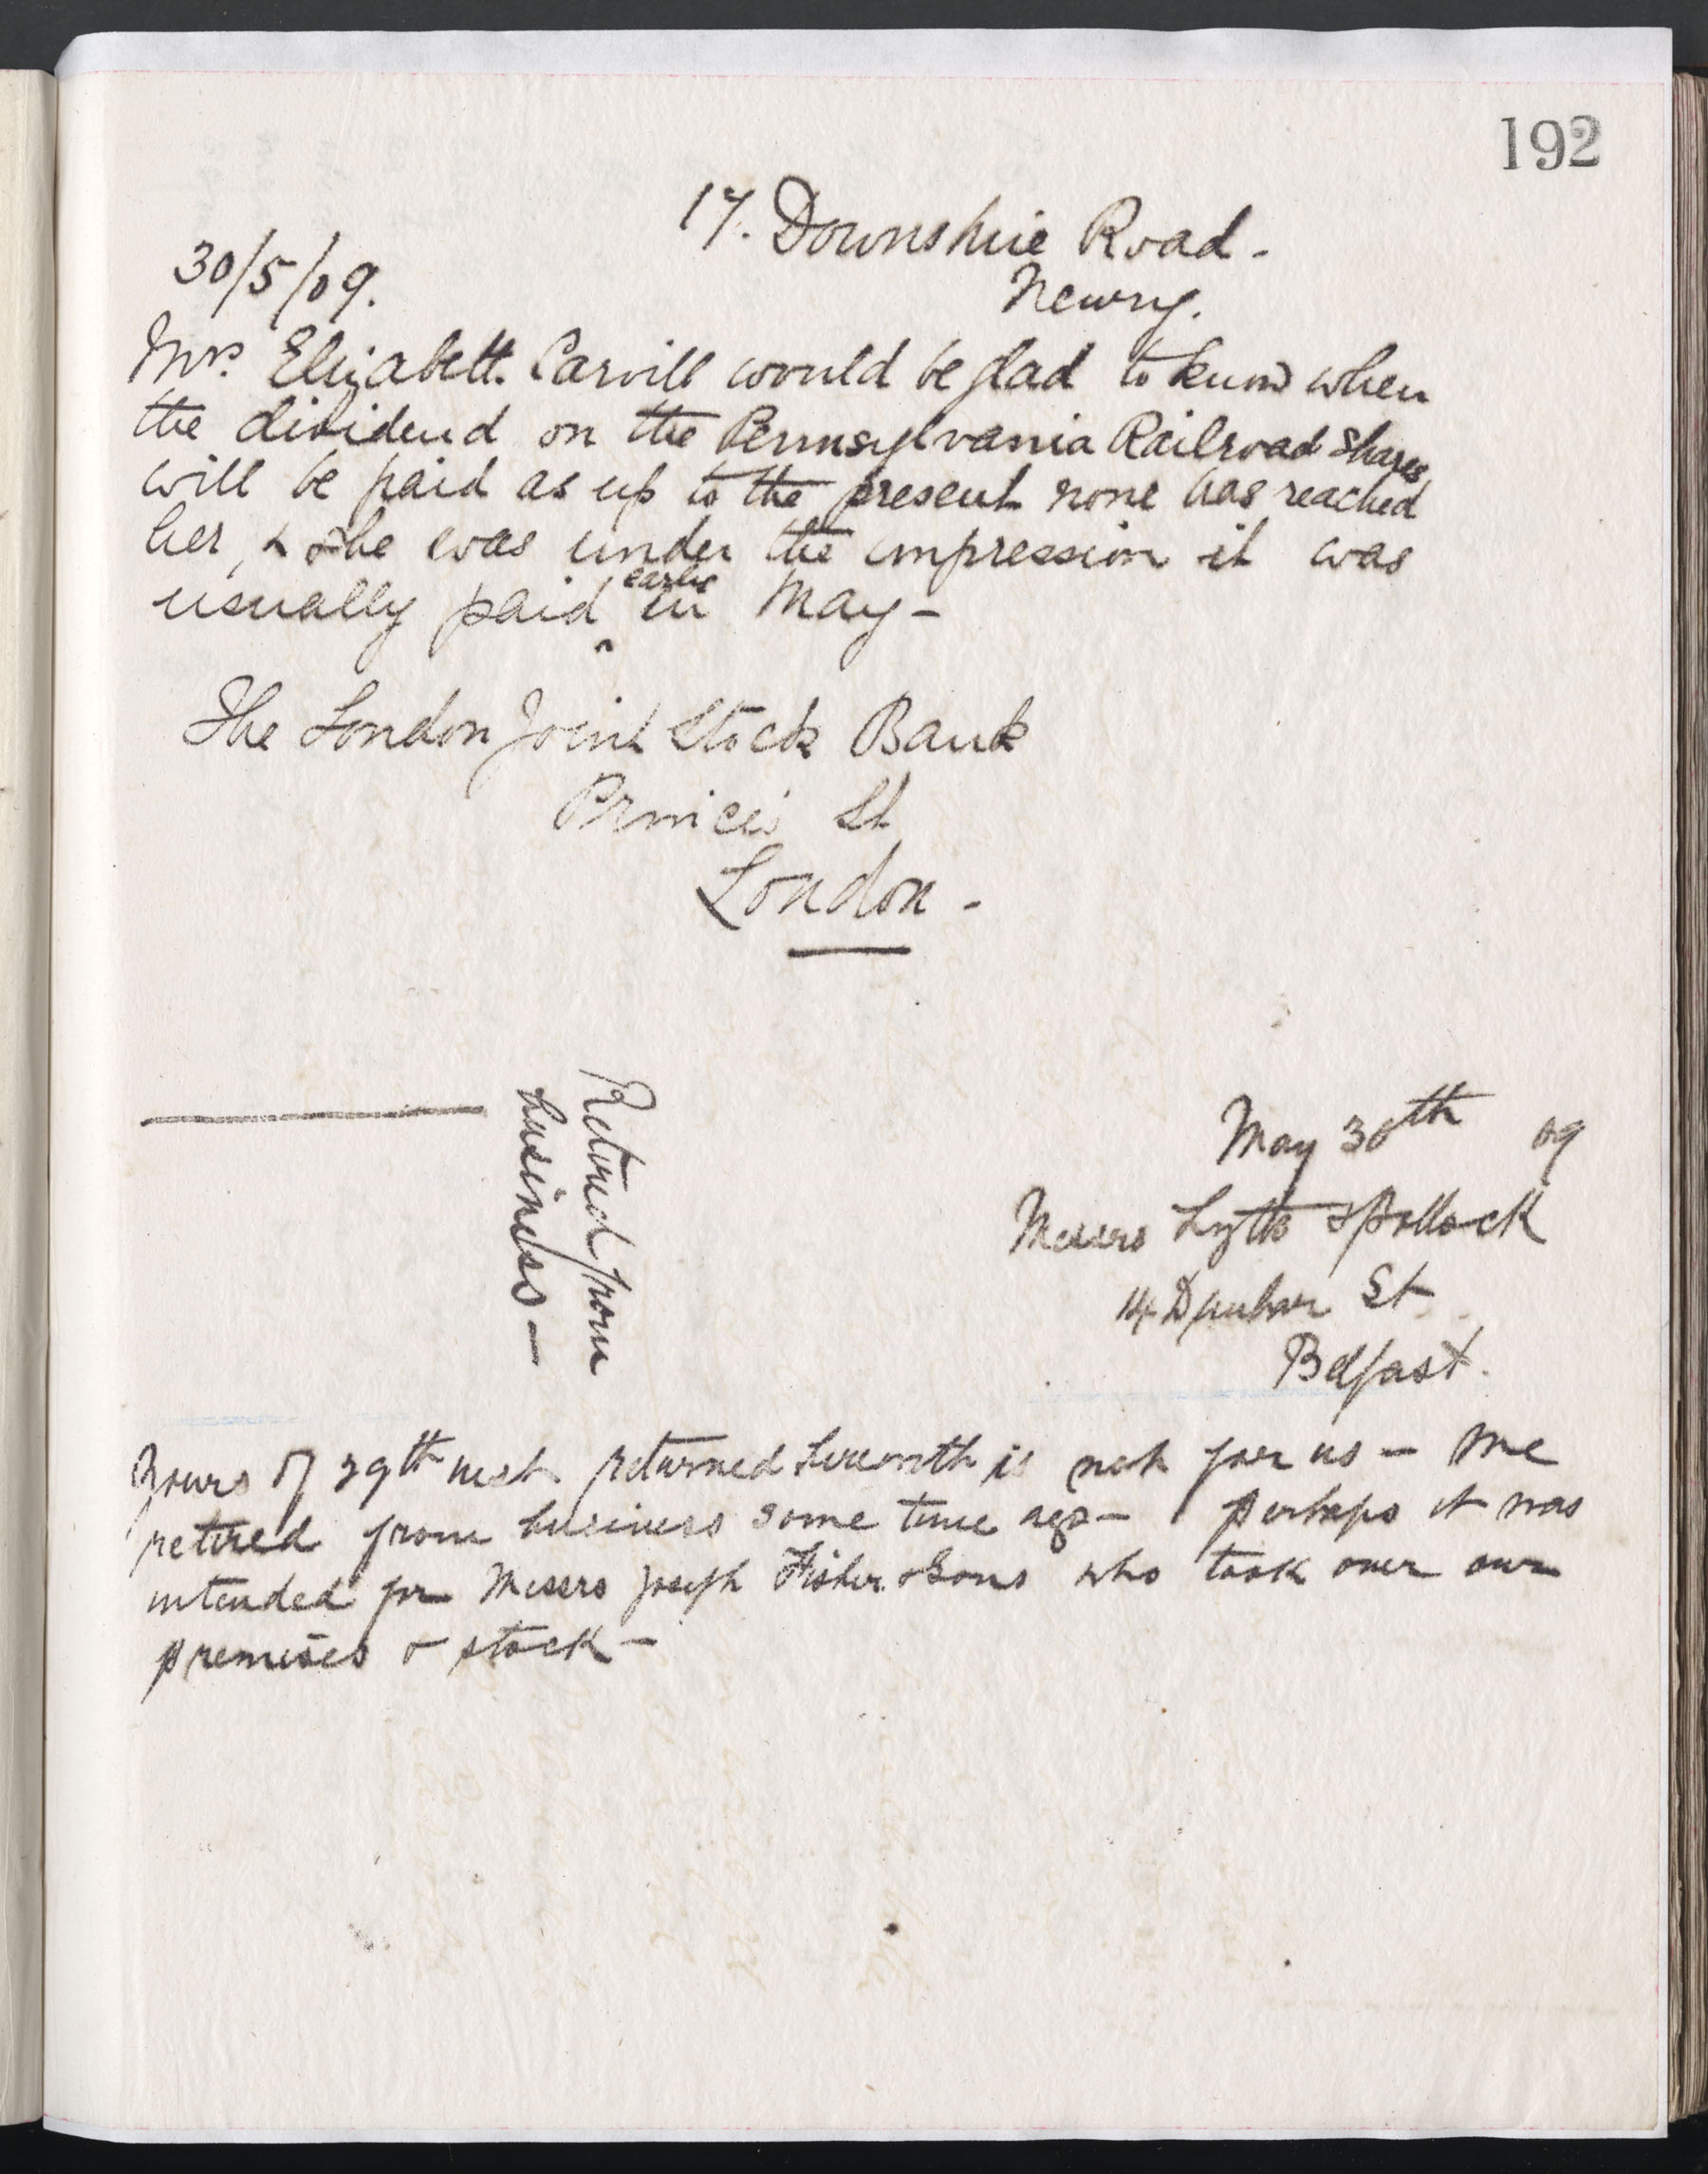 192
17. Downshire Road -
Newry.
30/5/09.
Mrs. Elizabeth Carvill would be glad to know when
the dividend on the Pennsylvania Railroad Shares
will be paid as up to the present none has reached
her, & she was under the impression it was
usually paid ^earlier in May -
The London Joint Stock Bank
Princes St
London -
May 30th 09
Messrs Lytle & Pollock
14 Dunbar St
Belfast.
Retired from
business -
Yours of 29th inst. returned herewith is not for us - We
retired from business some time ago - perhaps it was
intended for Messrs Joseph Fisher & Sons who took over our
premises & stock -